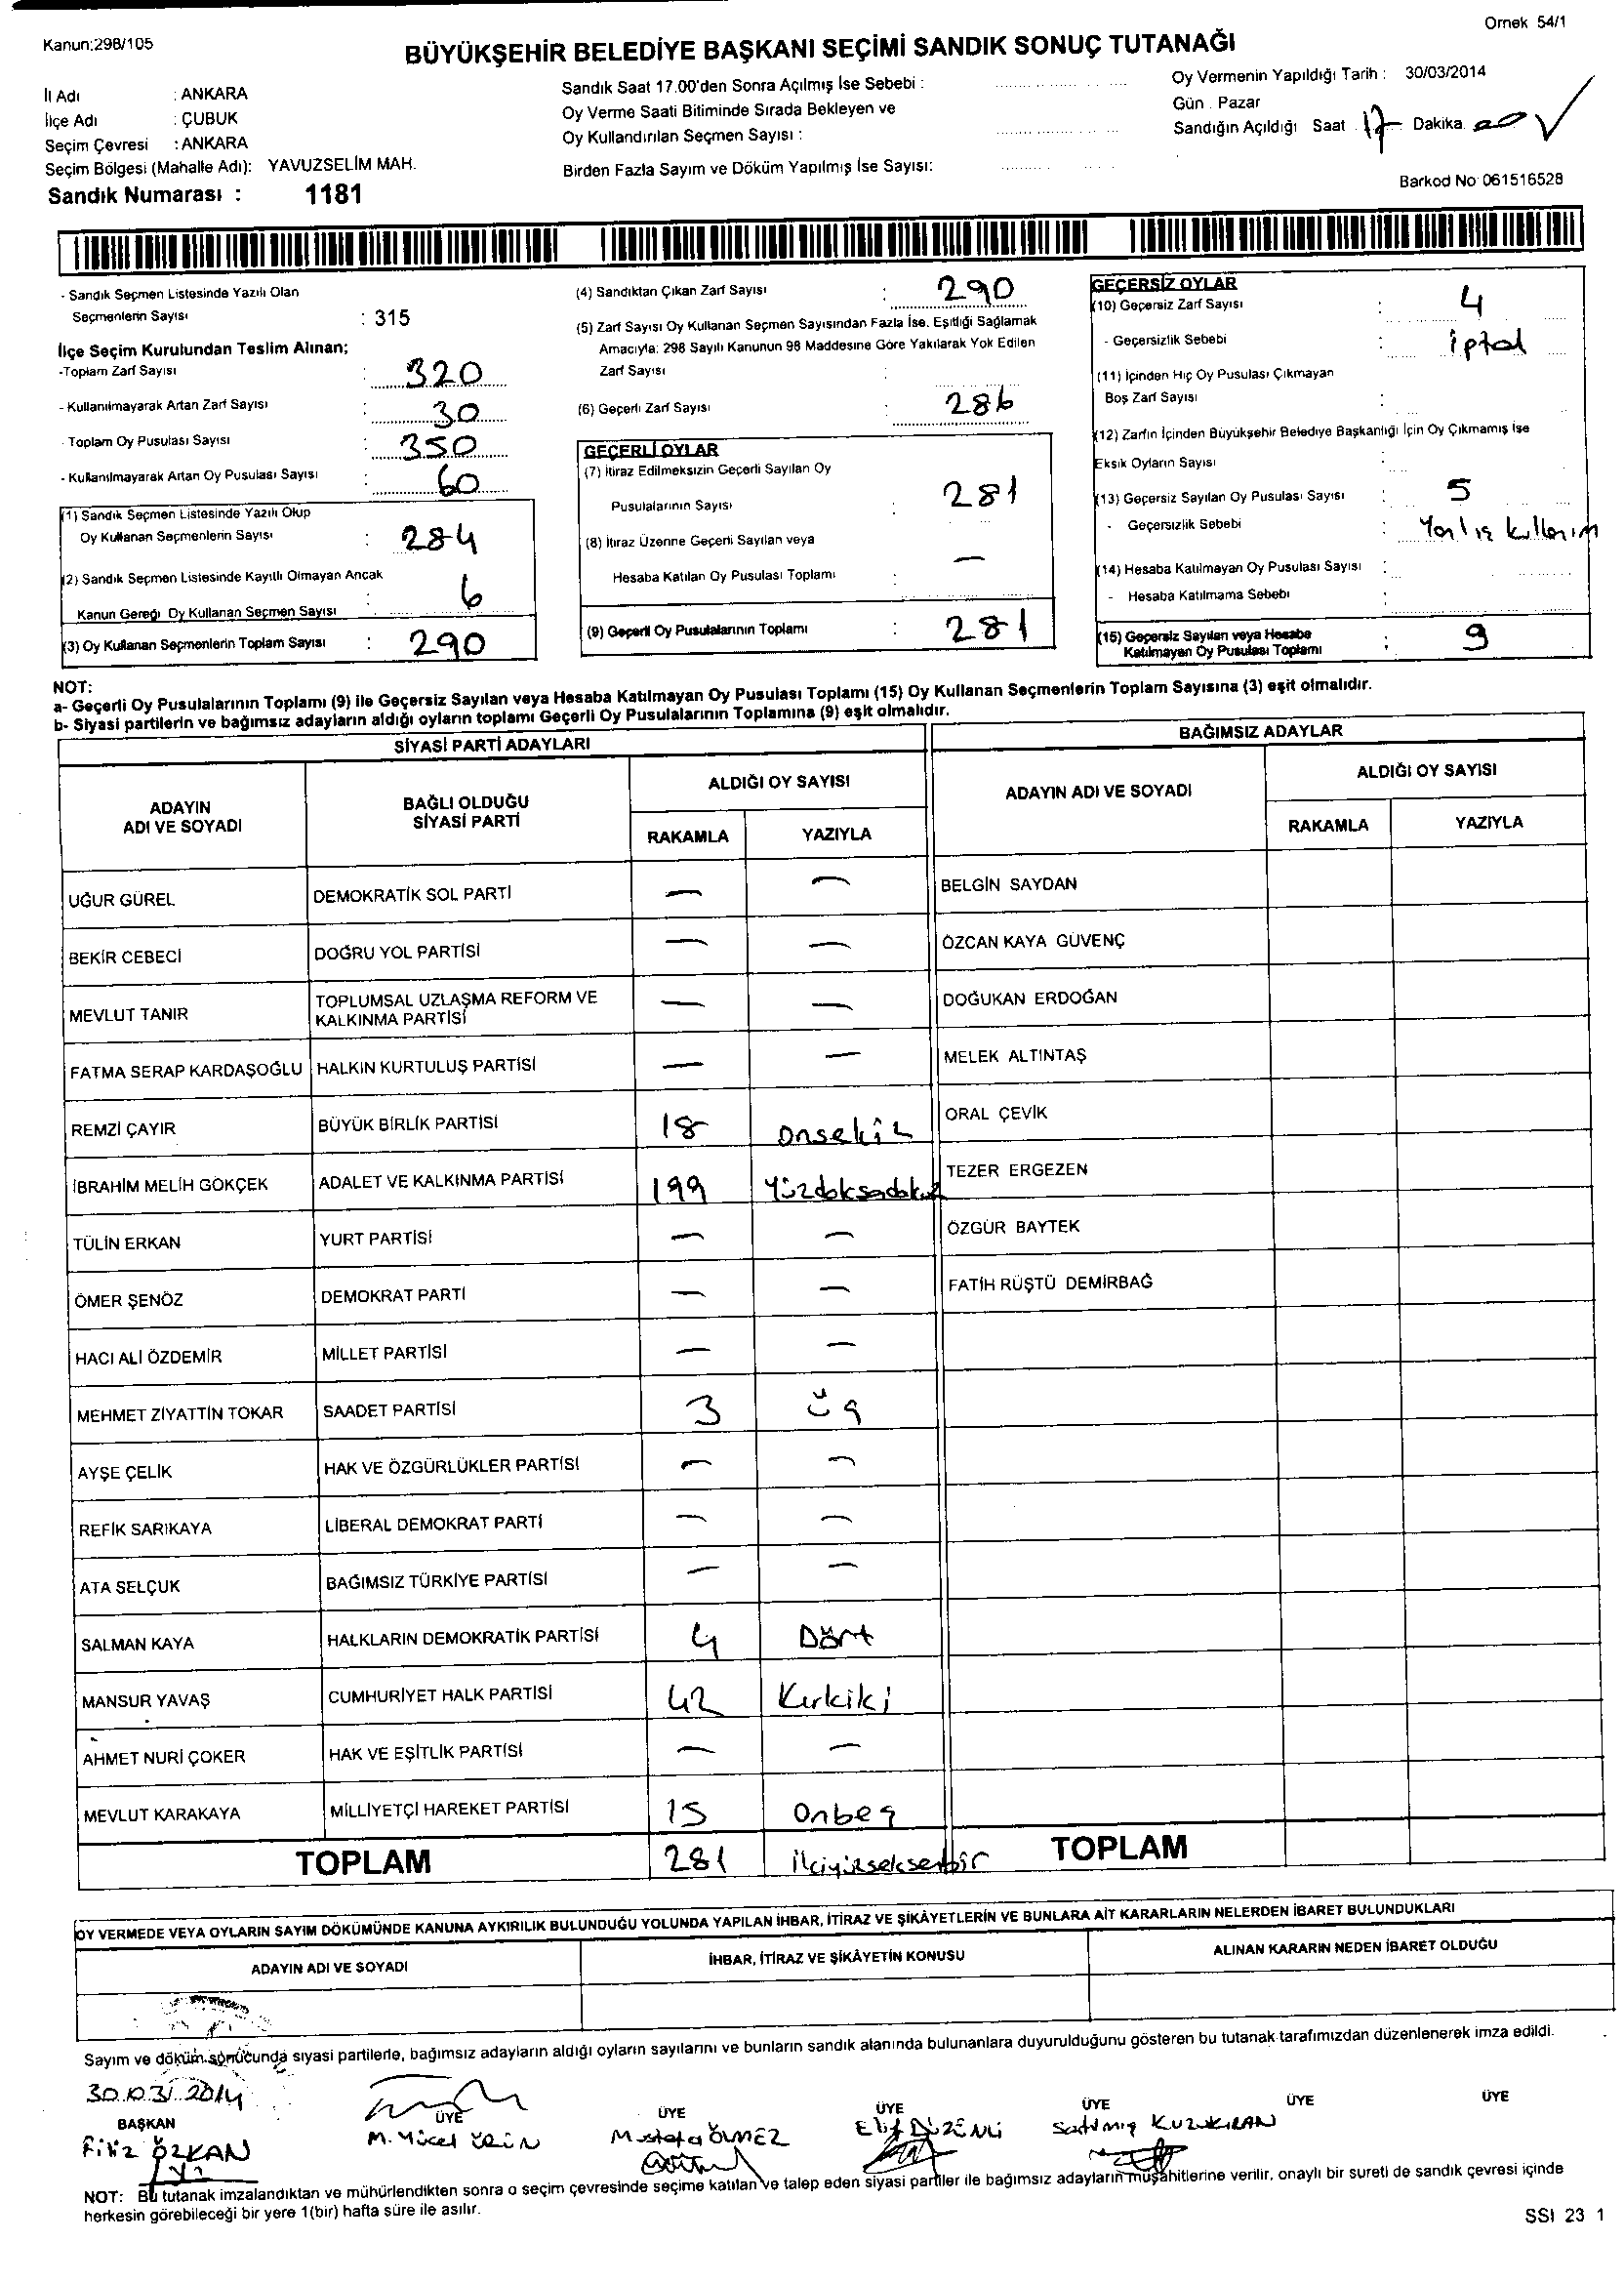 Ornek 54/1
Kanun:298/105
BÜYÜKŞEHİR BELEDİYE BAŞKANI SEÇİMİ SANDIK SONUÇ TUTANAĞI
İl Adı : ANKARA
İlçe Adı : ÇUBUK
Seçim Çevresi : ANKARA
Seçim Bölgesi (Mahalle Adı): YAVUZSELİM MAH.
Sandık Numarası : 1181
Sandık Saat 17.00'den Sonra Açılmış İse Sebebi :
Oy Verme Saati Bitiminde Sırada Bekleyen ve
Oy Kullandırılan Seçmen Sayısı :
Birden Fazla Sayım ve Döküm Yapılmış İse Sayısı:
Oy Vermenin Yapıldığı Tarih : 30/03/2014
Gün : Pazar
Sandığın Açıldığı Saat 17 Dakika
Barkod No 061516528
- Sandık Seçmen Listesinde Yazılı Olan
Seçmenlerin Sayısı : 315
İlçe Seçim Kurulundan Teslim Alınan;
-Toplam Zarf Sayısı : 320
- Kullanılmayarak Artan Zarf Sayısı : 30
- Toplam Oy Pusulası Sayısı : 350
- Kullanılmayarak Artan Oy Pusulası Sayısı : 60
(1) Sandık Seçmen Listesinde Yazılı Olup
Oy Kullanan Seçmenlerin Sayısı : 284
(2) Sandık Seçmen Listesinde Kayıtlı Olmayan Ancak
Kanun Gereği Oy Kullanan Seçmen Sayısı : 6
(3) Oy Kullanan Seçmenlerin Toplam Sayısı : 290
(4) Sandıktan Çıkan Zarf Sayısı : 290
(5) Zarf Sayısı Oy Kullanan Seçmen Sayısından Fazla İse. Eşitliği Sağlamak
Amacıyla; 298 Sayılı Kanunun 98 Maddesine Göre Yakılarak Yok Edilen
Zarf Sayısı :
(6) Geçerli Zarf Sayısı : 286
GEÇERLİ OYLAR
(7) İtiraz Edilmeksizin Geçerli Sayılan Oy
Pusulalarının Sayısı : 281
(8) İtiraz Üzerine Geçerli Sayılan veya
Hesaba Katılan Oy Pusulası Toplamı : —
(9) Geçerli Oy Pusulalarının Toplamı : 281
GEÇERSİZ OYLAR
(10) Geçersiz Zarf Sayısı : 4
- Geçersizlik Sebebi : iptal
(11) İçinden Hiç Oy Pusulası Çıkmayan
Boş Zarf Sayısı :
(12) Zarfın İçinden Büyükşehir Belediye Başkanlığı İçin Oy Çıkmamış İse
Eksik Oyların Sayısı :
(13) Geçersiz Sayılan Oy Pusulası Sayısı : 5
- Geçersizlik Sebebi : Yanlış kullanım
(14) Hesaba Katılmayan Oy Pusulası Sayısı :
- Hesaba Katılmama Sebebi :
(15) Geçersiz Sayılan veya Hesaba
Katılmayan Oy Pusulası Toplamı : 9
NOT:
a- Geçerli Oy Pusulalarının Toplamı (9) ile Geçersiz Sayılan veya Hesaba Katılmayan Oy Pusulası Toplamı (15) Oy Kullanan Seçmenlerin Toplam Sayısına (3) eşit olmalıdır.
b- Siyasi partilerin ve bağımsız adayların aldığı oyların toplamı Geçerli Oy Pusulalarının Toplamına (9) eşit olmalıdır.
SİYASİ PARTİ ADAYLARI
ADAYIN ADI VE SOYADI
BAĞLI OLDUĞU SİYASİ PARTİ
ALDIĞI OY SAYISI
RAKAMLA YAZIYLA
UĞUR GÜREL DEMOKRATİK SOL PARTİ — —
BEKİR CEBECİ DOĞRU YOL PARTİSİ — —
MEVLUT TANIR TOPLUMSAL UZLAŞMA REFORM VE KALKINMA PARTİSİ — —
FATMA SERAP KARDAŞOĞLU HALKIN KURTULUŞ PARTİSİ — —
REMZİ ÇAYIR BÜYÜK BİRLİK PARTİSİ 18 onsekiz
İBRAHİM MELİH GÖKÇEK ADALET VE KALKINMA PARTİSİ 199 Yüzdoksadokuz
TÜLİN ERKAN YURT PARTİSİ — —
ÖMER ŞENÖZ DEMOKRAT PARTİ — —
HACI ALİ ÖZDEMİR MİLLET PARTİSİ — —
MEHMET ZİYATTİN TOKAR SAADET PARTİSİ 3 üç
AYŞE ÇELİK HAK VE ÖZGÜRLÜKLER PARTİSİ — —
REFİK SARIKAYA LİBERAL DEMOKRAT PARTİ — —
ATA SELÇUK BAĞIMSIZ TÜRKİYE PARTİSİ — —
SALMAN KAYA HALKLARIN DEMOKRATİK PARTİSİ 4 Dört
MANSUR YAVAŞ CUMHURİYET HALK PARTİSİ 42 Kırkiki
AHMET NURİ ÇOKER HAK VE EŞİTLİK PARTİSİ — —
MEVLUT KARAKAYA MİLLİYETÇİ HAREKET PARTİSİ 15 onbeş
TOPLAM 281 ikiyüzseksenbir
BAĞIMSIZ ADAYLAR
ADAYIN ADI VE SOYADI
ALDIĞI OY SAYISI
RAKAMLA YAZIYLA
BELGİN SAYDAN
ÖZCAN KAYA GÜVENÇ
DOĞUKAN ERDOĞAN
MELEK ALTINTAŞ
ORAL ÇEVİK
TEZER ERGEZEN
ÖZGÜR BAYTEK
FATİH RÜŞTÜ DEMİRBAĞ
TOPLAM
OY VERMEDE VEYA OYLARIN SAYIM DÖKÜMÜNDE KANUNA AYKIRILIK BULUNDUĞU YOLUNDA YAPILAN İHBAR, İTİRAZ VE ŞİKÂYETLERİN VE BUNLARA AİT KARARLARIN NELERDEN İBARET BULUNDUKLARI
ADAYIN ADI VE SOYADI
İHBAR, İTİRAZ VE ŞİKÂYETİN KONUSU
ALINAN KARARIN NEDEN İBARET OLDUĞU
Sayım ve döküm sonucunda siyasi partilerle, bağımsız adayların aldığı oyların sayılarını ve bunların sandık alanında bulunanlara duyurulduğunu gösteren bu tutanak tarafımızdan düzenlenerek imza edildi.
30.03.2014
BAŞKAN ÜYE ÜYE ÜYE ÜYE ÜYE ÜYE
Filiz ÖZKAN M. Yücel Mustafa ÖLMEZ Elif DÜZENLİ Satılmış KUZUKIRAN
NOT: Bu tutanak imzalandıktan ve mühürlendikten sonra o seçim çevresinde seçime katılan ve talep eden siyasi partiler ile bağımsız adayların müşahitlerine verilir, onaylı bir sureti de sandık çevresi içinde
herkesin görebileceği bir yere 1(bir) hafta süre ile asılır.
SSI 23 1